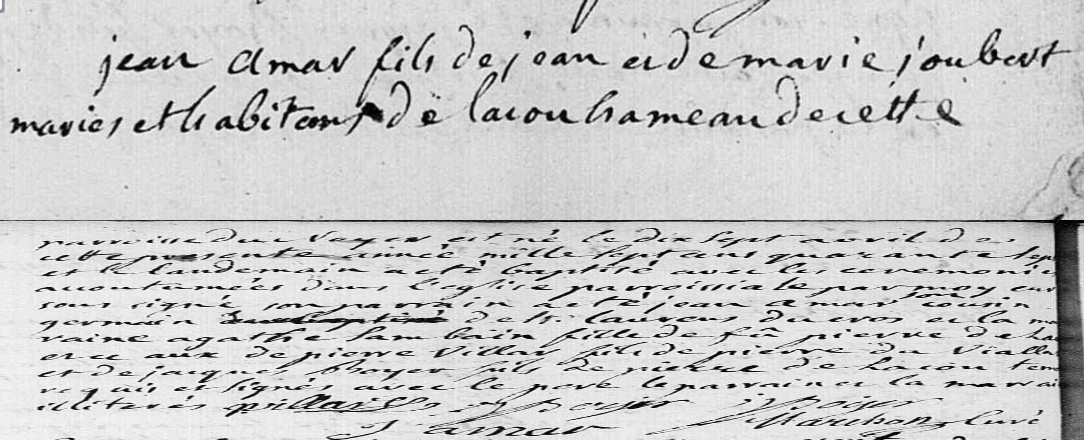 jean amar fils de jean et de marie joubert
maries et habitans de lacou hameau de cette
parroisse du est né le dix sept avril de
cette presente année mille sept cens quarante sept
et le landemain a eté baptisé avec les ceremonies
acoutumées dans l'eglise parroissiale par moy curé
sous signé son parrain a eté jean amar cousin
germain de st laurens du cros et la
raine agathe fille de pierre de
et ce aux de pierre Villar fils de pierre du Villar
et de jacques Boyer fils de pierre de Lacou
requis et signés avec le pere le parrain et la
illiterés Boyer
J amar curé